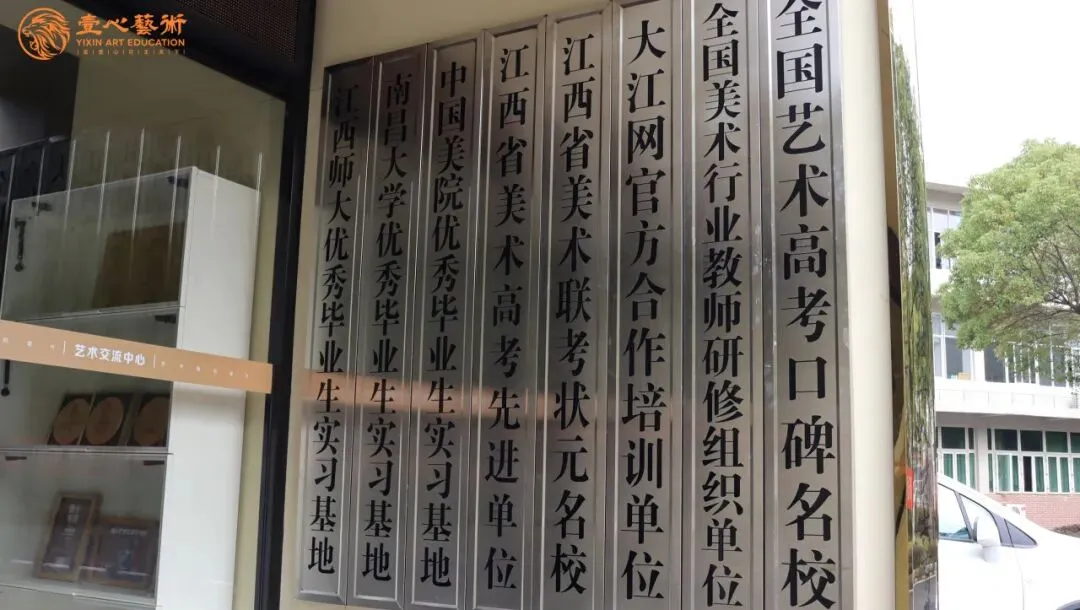 壹心藝術
YIXIN ART EDUCATION
全国艺术高考口碑名校
全国美术行业教师研修组织单位
大江网官方合作培训单位
江西省美术联考状元名校
江西省美术高考先进单位
中国美院优秀毕业生实习基地
南昌大学优秀毕业生实习基地
江西师大优秀毕业生实习基地
艺术交流中心